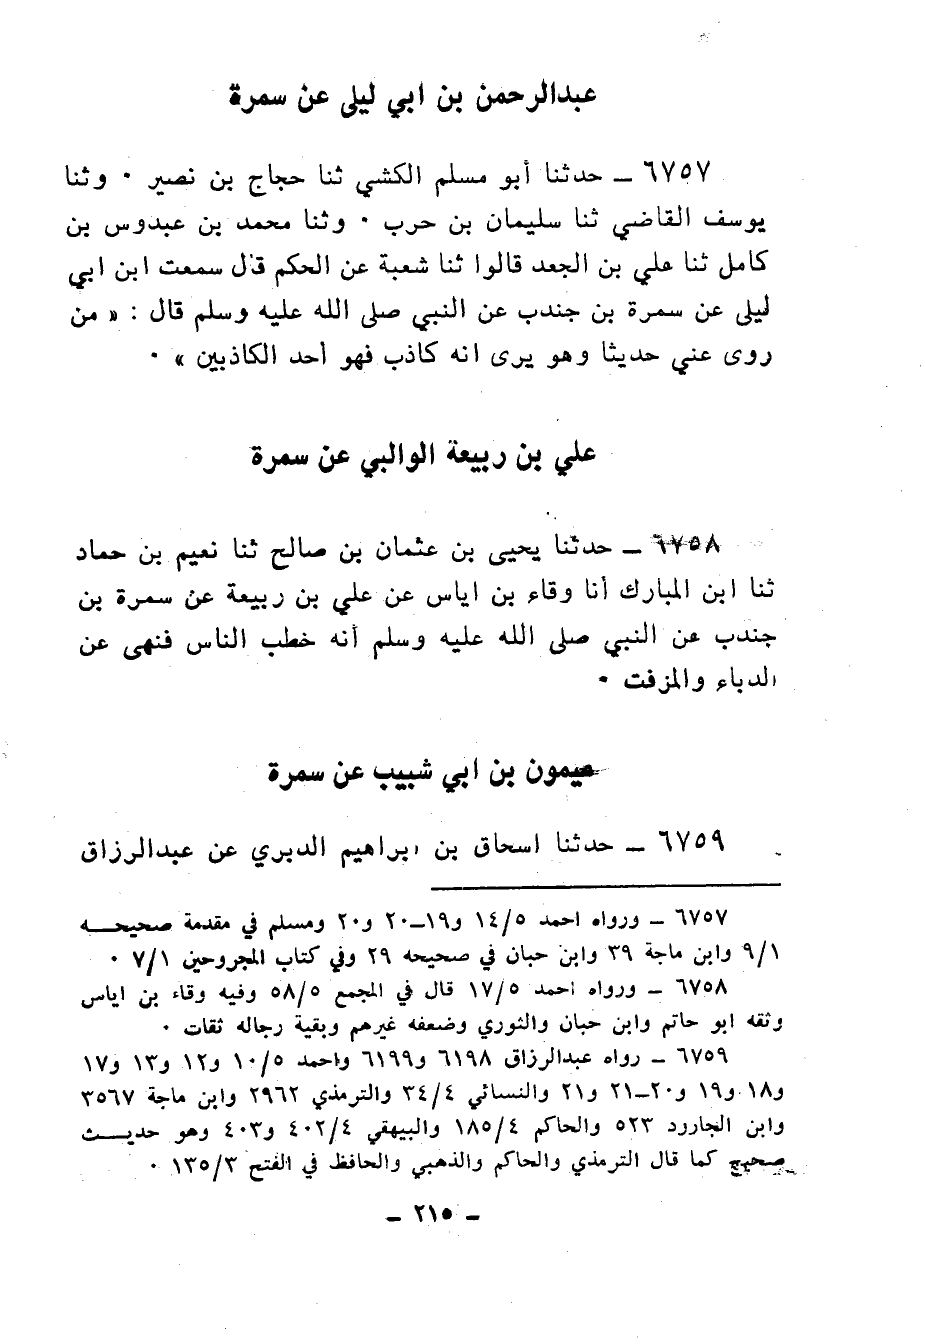 عبدالرحمن بن ابي ليلى عن سمرة
٦٧٥٧ ــ حدثنا أبو مسلم الكشي ثنا حجاج بن نصير ٠ وثنا
يوسف القاضي ثنا سليمان بن حرب ٠ وثنا محمد بن عبدوس بن
كامل ثنا علي بن الجعد قالوا ثنا شعبة عن الحكم قال سمعت ابن ابي
ليلى عن سمرة بن جندب عن النبي صلى الله عليه وسلم قال : « من
روى عني حديثا وهو يرى انه كاذب فهو أحد الكاذبين » ٠
علي بن ربيعة الوالبي عن سمرة
٦٧٥٨ ــ حدثنا يحيى بن عثمان بن صالح ثنا نعيم بن حماد
ثنا ابن المبارك أنا وقاء بن اياس عن علي بن ربيعة عن سمرة بن
جندب عن النبي صلى الله عليه وسلم أنه خطب الناس فنهى عن
الدباء والمزفت ٠
ميمون بن ابي شبيب عن سمرة
٦٧٥٩ ــ حدثنا اسحاق بن ابراهيم الدبري عن عبدالرزاق
٦٧٥٧ ــ ورواه احمد ١٤/٥ و١٩ــ٢٠ و٢٠ ومسلم في مقدمة صحيحـــه
٩/١ وابن ماجة ٣٩ وابن حبان في صحيحه ٢٩ وفي كتاب المجروحين ٧/١ ٠
٦٧٥٨ ــ ورواه احمد ١٧/٥ قال في المجمع ٥٨/٥ وفيه وقاء بن اياس
وثقه ابو حاتم وابن حبان والثوري وضعفه غيرهم وبقية رجاله ثقات ٠
٦٧٥٩ ــ رواه عبدالرزاق ٦١٩٨ و٦١٩٩ واحمد ١٠/٥ و١٢ و١٣ و١٧
و١٨ و١٩ و٢٠ــ٢١ و٢١ والنسائي ٣٤/٤ والترمذي ٢٩٦٢ وابن ماجة ٣٥٦٧
وابن الجاررد ٥٢٣ والحاكم ١٨٥/٤ والبيهقي ٤٠٢/٤ و٤٠٣ وهو حديـــث
صحيح كما قال الترمذي والحاكم والذهبي والحافظ في الفتح ١٣٥/٣ ٠
ــ ٢١٥ ــ